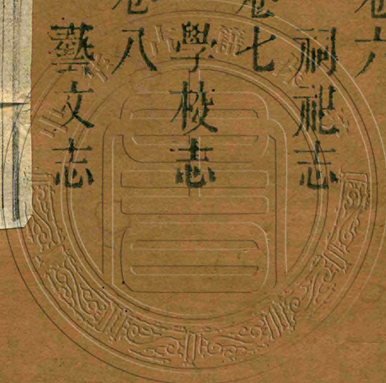 卷六
祠祀志
卷七
學校志
卷八
藝文志